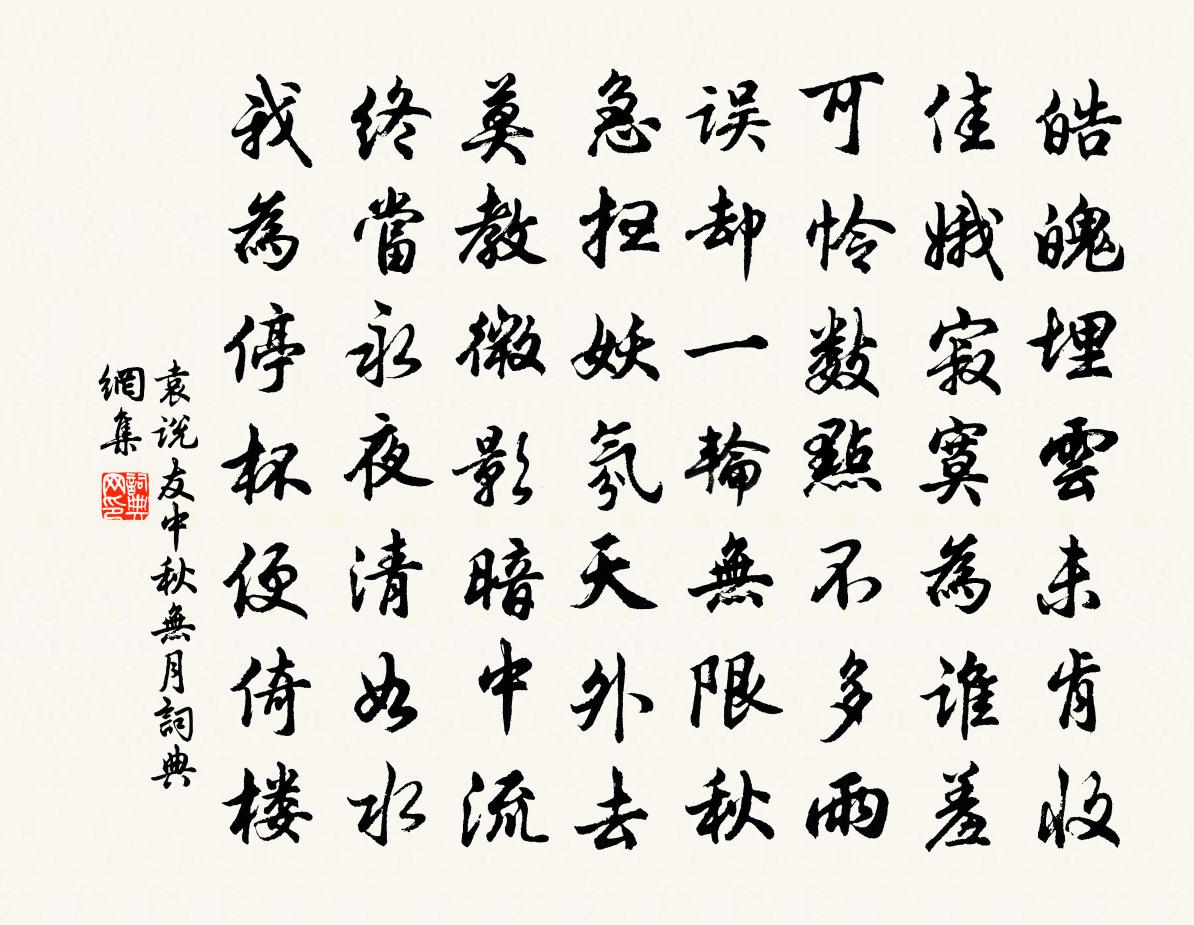 皓魄埋雲未肯收
佳娥寂寞為誰羞
可怜數點不多雨
误却一輪無限秋
急扫妖氛天外去
莫教微影暗中流
终當永夜清如水
我為停杯便倚楼
袁说友中秋無月詞典
網集
詞典网印